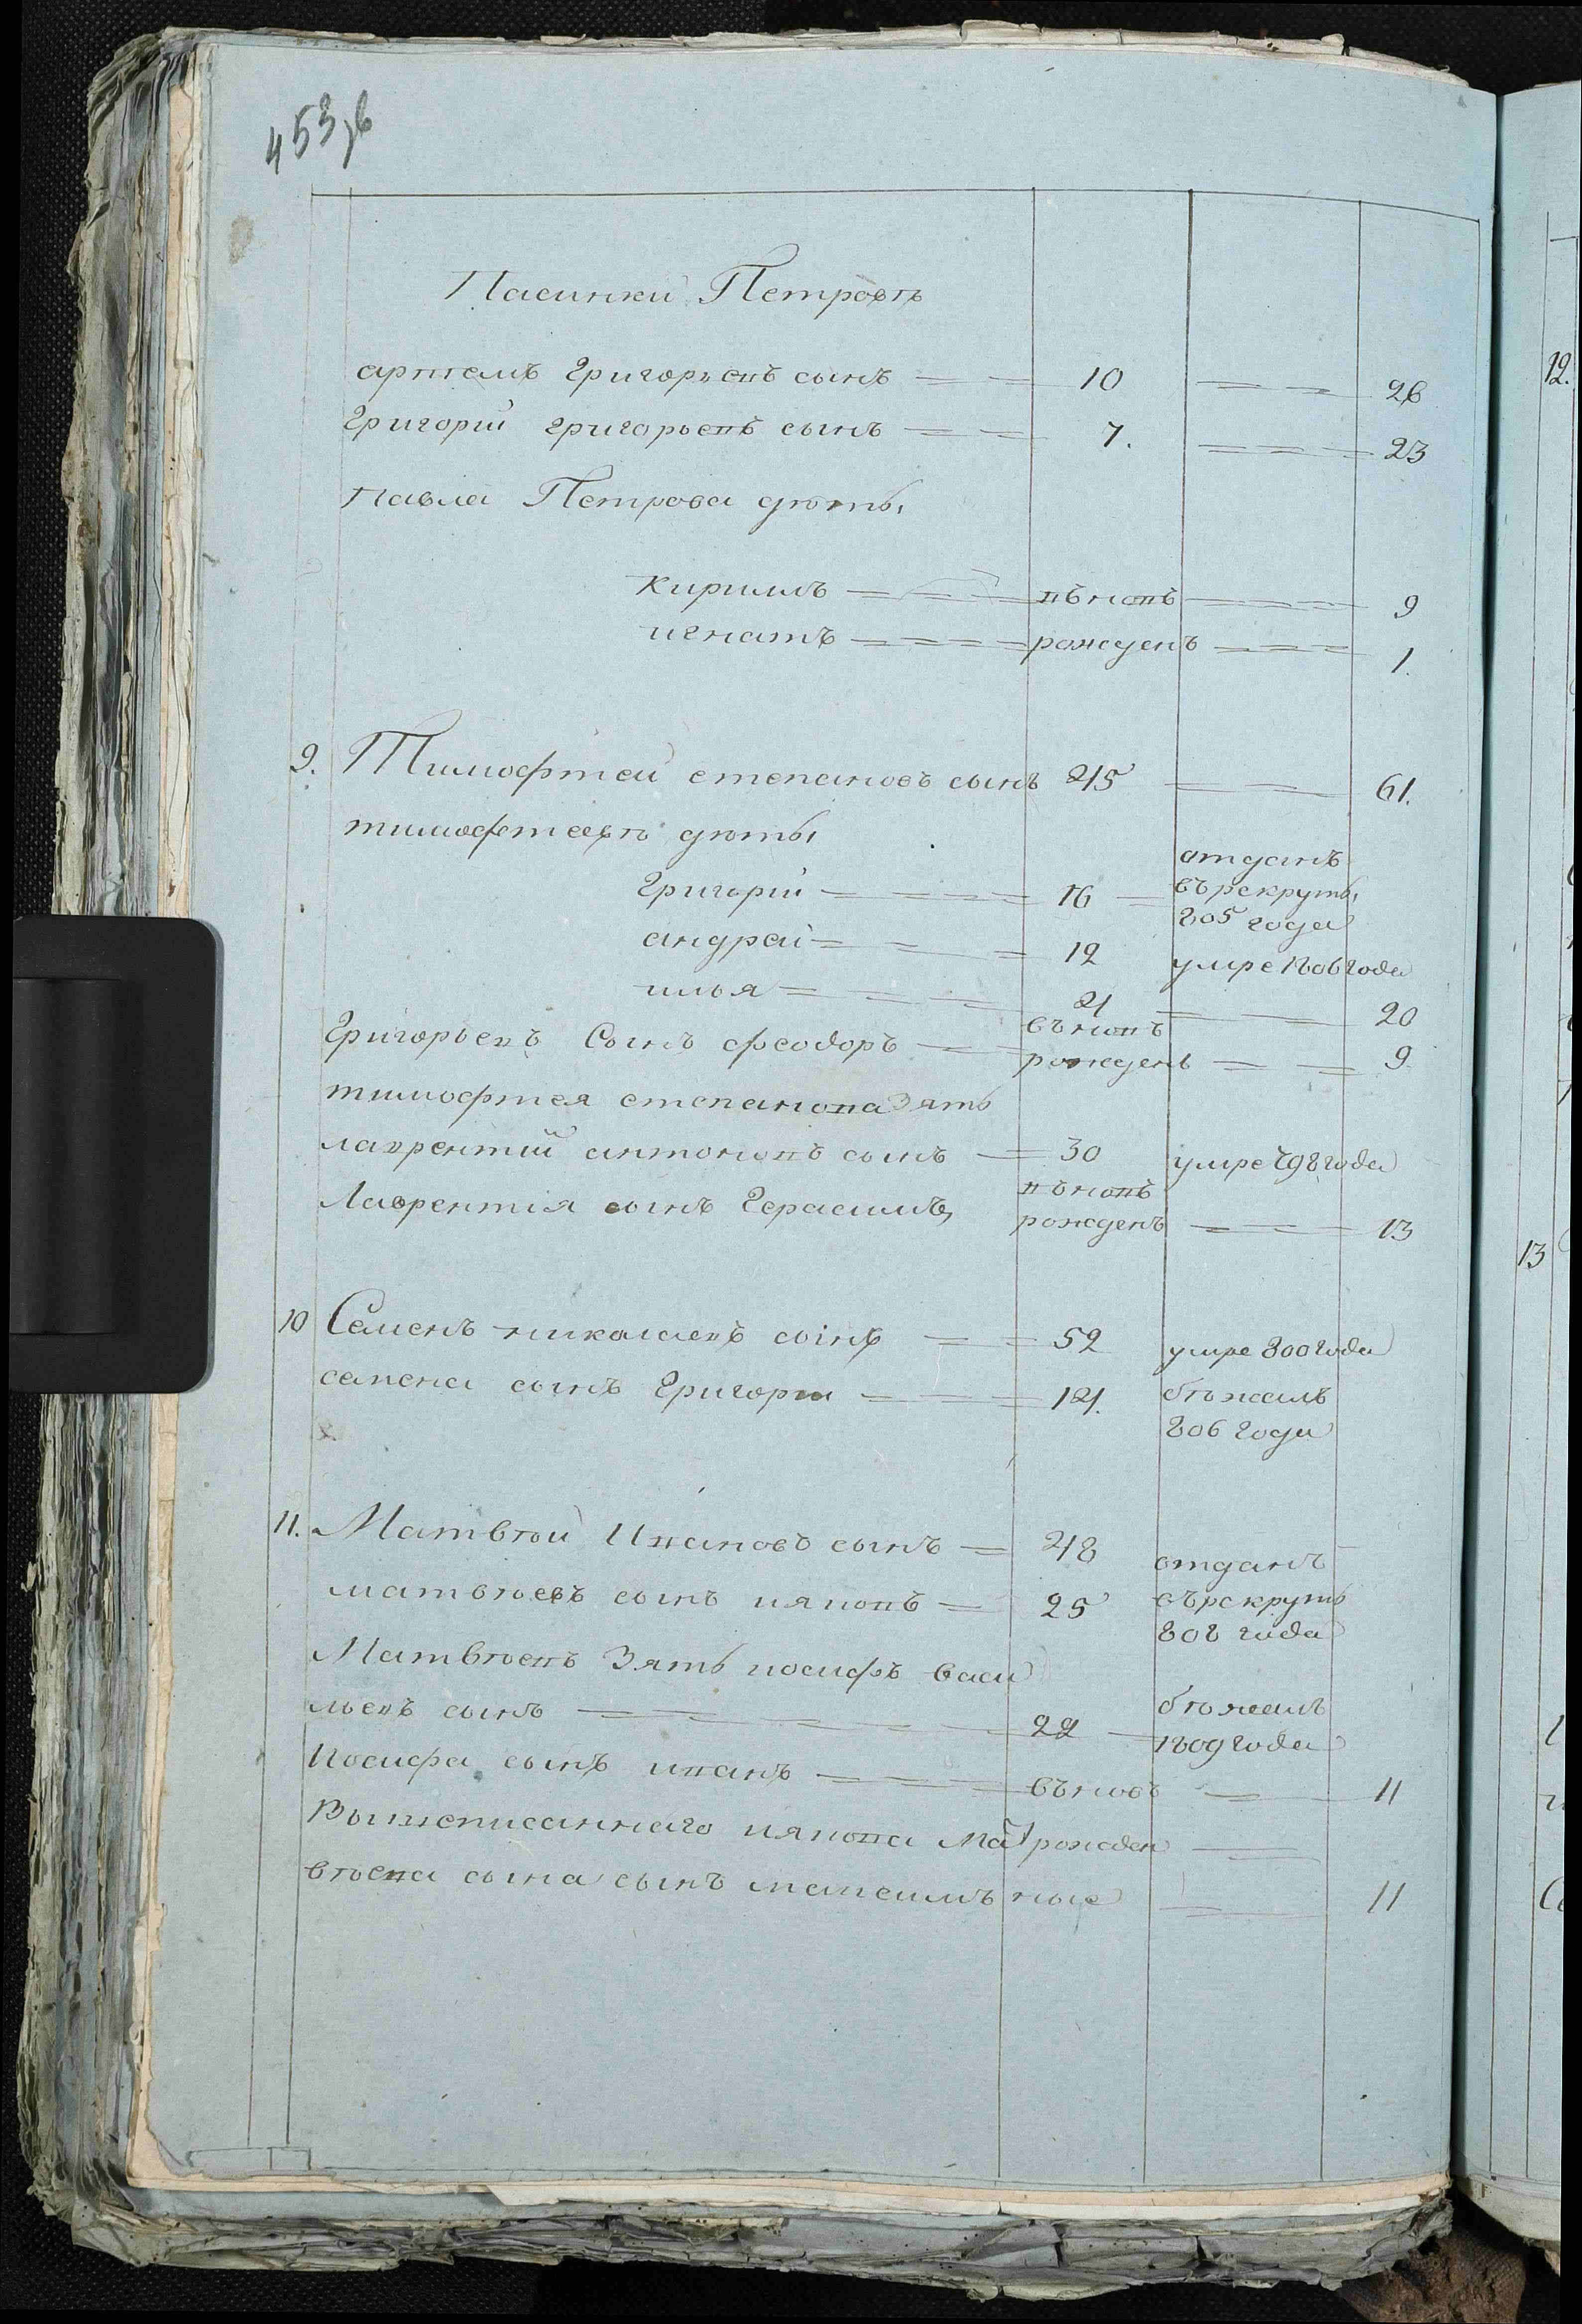 453 зв
Пасинки Петровъ
артемъ Григорьевъ сынъ 10 26
Григорій григорьевъ сынъ 7. 23
павла Петрова дѣты
кирилъ вънопъ 9
игнатъ рожденъ 1.
9. Тимофтей степановъ сынъ 45 61.
тимофтеевъ дѣты
отданъ
Григорій 16 въ рекруты
805 года
андрей 12 умре 1806 года
илья 4 20
вновь
Григорьевъ Сынъ феодоръ рожденъ 9
тимофтея степанова Зять
лаврентий антоновъ сынъ 30 умре 798 года
вновъ
Лаврентія сынъ Герасимъ, рожденъ 13
10 Семенъ николаевъ сынъ 52 умре 800 года
семена сынъ Григори 14. бѣжалъ
806 года
11. Матвѣй Ивановъ сынъ 48 отданъ
матвѣевъ сынъ ияковъ 25 въ рекруты
808 года
Матвѣевъ Зять иосифъ васи
бѣжалъ
льевъ сынъ 22 1809 года
Иосифа сынъ иванъ въновъ 11
Вышеписаннаго иякова мат рожден
вѣева сына сынъ максимъ ные 11
12.
13